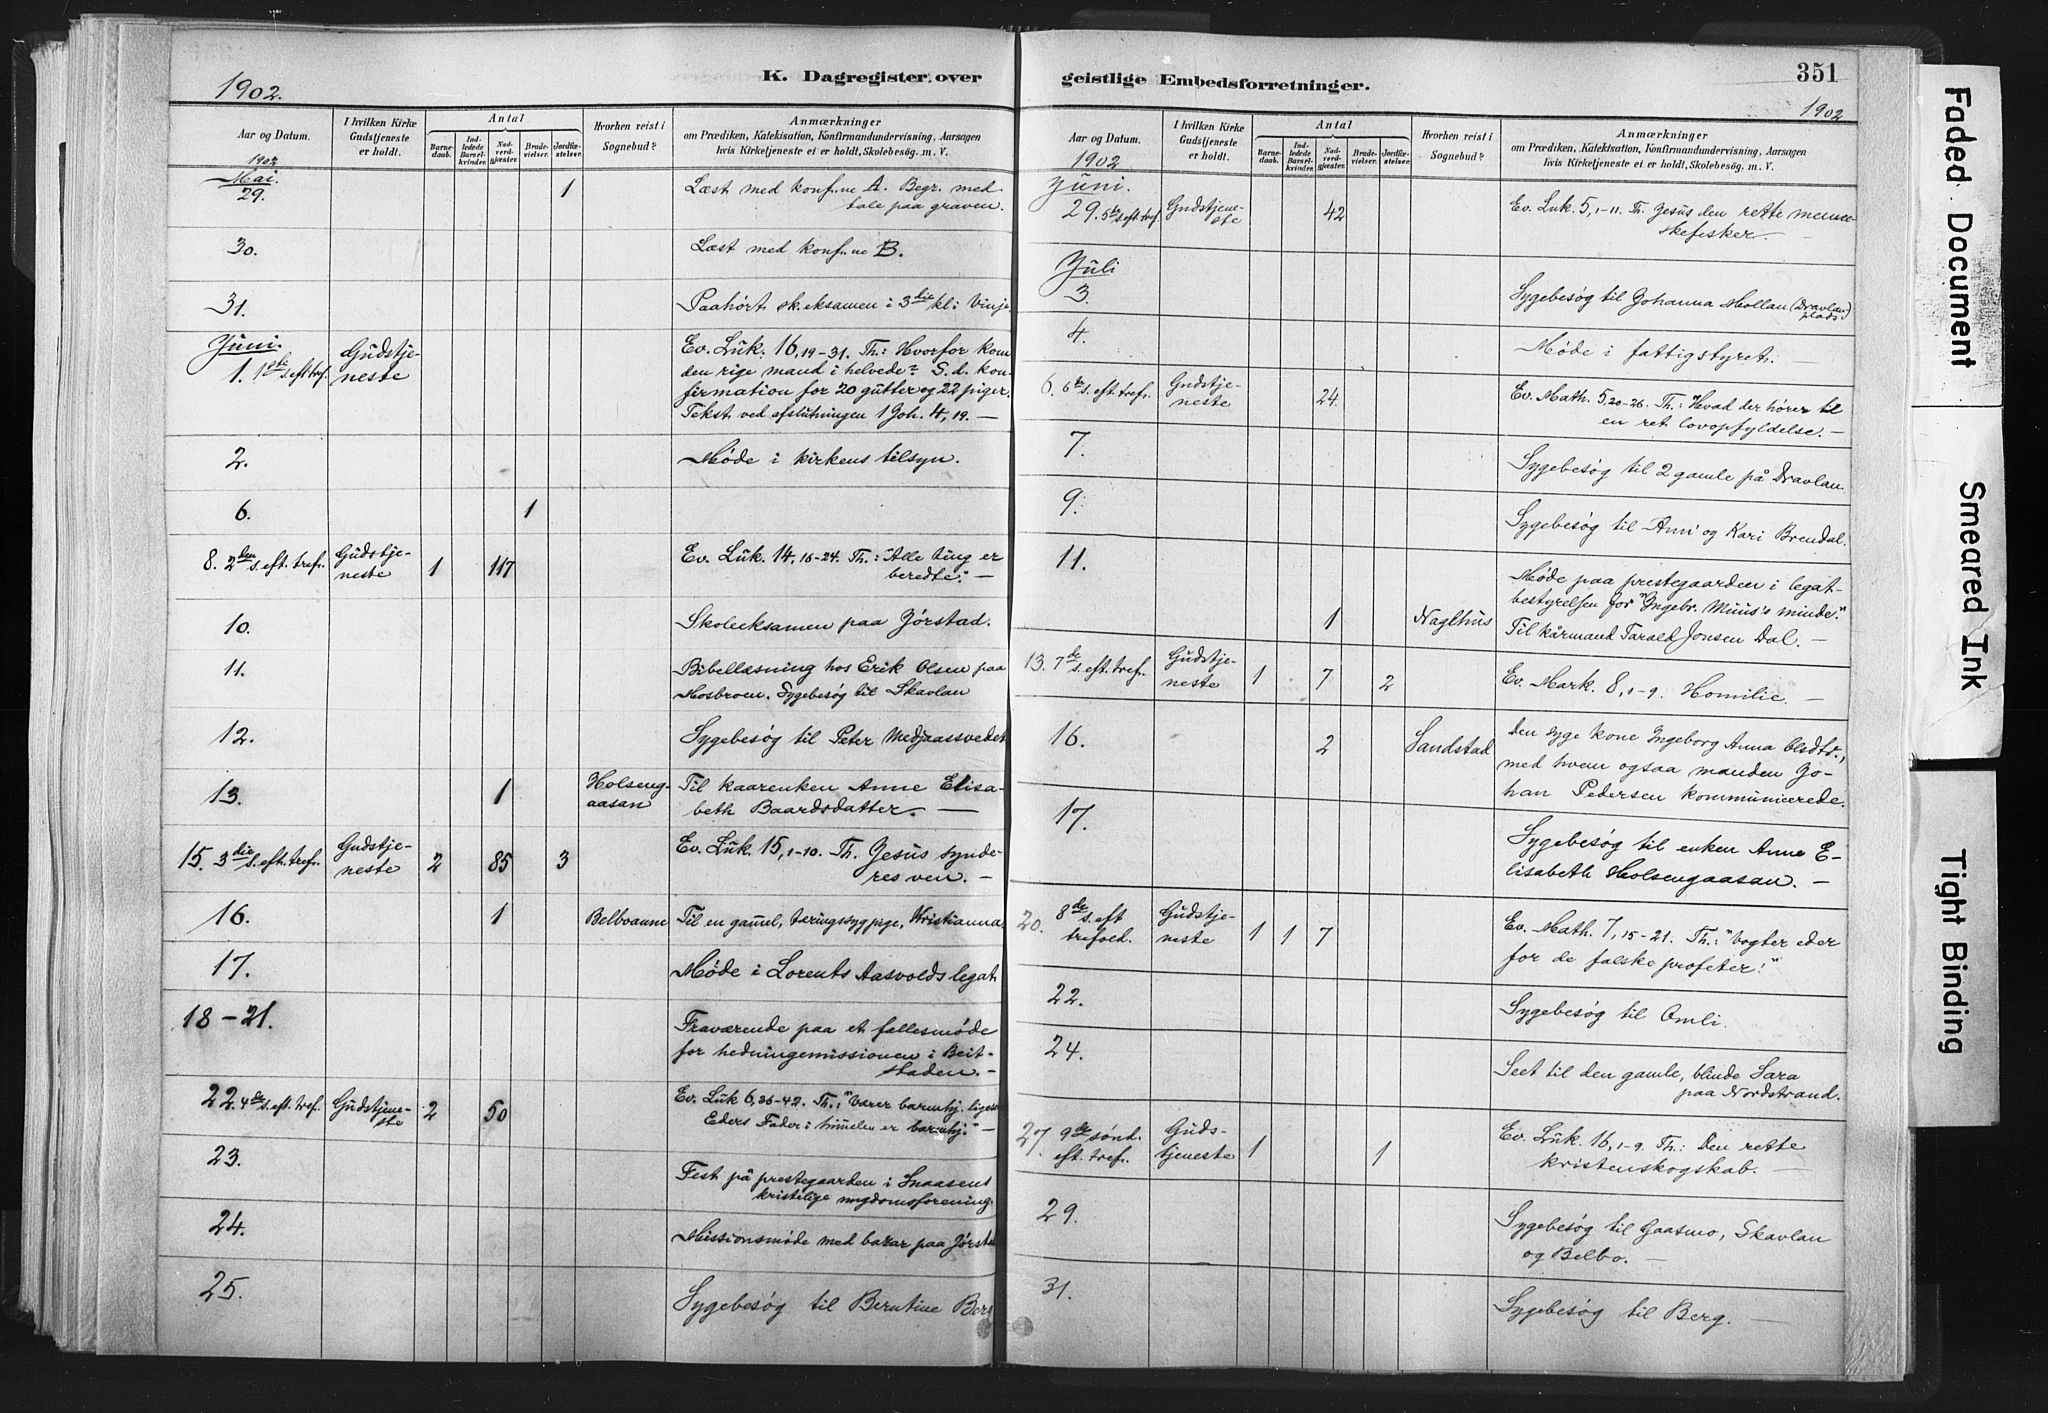 1902.
K. Dagregister over
Aar og Datum.
I hvilken Kirke
Gudstjeneste
er holdt.
Antal
Barne-
daab.
Ind-
ledede
Barsel-
kvinder.
Nad-
verd-
gjæster.
Brude-
vielser.
Jordfæ-
stelser.
Hvorhen reist i
Sognebud?
Anmærkninger
om Prædiken, Katekisation, Konfirmandundervisning, Aarsagen
hvis Kirketjeneste ei er holdt, Skolebesøg. m. V.
1902
Mai.
29. 1 Læst med konf.ne A. Begr. med
tale paa graven.
30. Læst med konf.ne B.
31. Paahørt sk.eksamen i 3die kl. i Vinje
Juni.
1. 1ste s. eft. tref. Gudstje-
neste
Ev. Luk. 16, 19-31. Th.: Hvorfor kom
den rige mand i helvede? S. d. kon-
firmation for 20 gutter og 22 piger.
Tekst ved afslutningen 1 Joh. 4, 19. —
2. Møde i kirkens tilsyn.
6. 1
8. 2den s. eft. tref. Gudstje-
neste 1 117
Ev. Luk. 14, 16-24. Th.: "Alle ting er
beredte". —
10. Skoleeksamen paa Jørstad.
11. Bibellæsning hos Erik Olsen paa
Mosbroen. Sygebesøg til Skavlan
12. Sygebesøg til Peter Medjaassvedet
13. 1 Holseng-
aasan
Til kaarenken Anne Elisa-
beth Baardsdatter. —
15. 3die s. eft. tref. Gudstje-
neste 2 85 3
Ev. Luk. 15, 1-10. Th. Jesus synde-
res ven. —
16. 1 Belboaune Til en gammel, tæringssyg pige, Kristianna
17. Møde i Lorents Aasvolds legat
18-21. Fraværende paa et fællesmøde
for hedningemissionen i Beit-
staden. —
22. 4de s. eft. tref. Gudstjene-
ste 2 50
Ev. Luk 6, 36-42. Th.: "Værer barmhj. ligesom
Eders Fader i himmelen er barmhj." —
23. Fest på prestegaarden i Snaasens
kristelige ungdomsforening.
24. Missionsmøde med bazar paa Jørstad
25. Sygebesøg til Berntine Berg
geistlige Embedsforretninger.
351
1902
Aar og Datum.
I hvilken Kirke
Gudstjeneste
er holdt.
Antal
Barne-
daab.
Ind-
ledede
Barsel-
kvinder.
Nad-
verd-
gjæster.
Brude-
vielser.
Jordfæ-
stelser.
Hvorhen reist i
Sognebud?
Anmærkninger
om Prædiken, Katekisation, Konfirmandundervisning, Aarsagen
hvis Kirketjeneste ei er holdt, Skolebesøg. m. V.
1902
Juni.
29. 5te s. eft. tref. Gudstjene-
ste 42
Ev. Luk. 5, 1-11. Th. Jesus den rette menne-
skefisker. —
Juli
3. Sygebesøg til Johanna Mollan (Dravlan
plads)
4. Møde i fattigstyret. —
6. 6te s. eft. tref. Gudstje-
neste 24.
Ev. Math. 5, 20-26. Th.: Hvad der hører til
en ret lovopfyldelse. —
7. Sygebesøg til 2 gamle på Dravlan.
9. Sygebesøg til Ani og Kari Brendal.
11. Møde paa prestegaarden i legat-
bestyrelsen for "Ingebr. Muus's minde."
1 Naglhus Til kårmand Tarald Jonsen Dal. —
13. 7de s. eft. tref. Gudstje-
neste 1 7 2
Ev. Mark. 8, 1-9. Homilie. —
16. 2 Sandstad
Den syge kone Ingeborg Anna Olsdtr.,
med hvem ogsaa manden Jo-
han Pedersen kommunicerede.
17. Sygebesøg til enken Anne E-
lisabeth Holsengaasan. —
20. 8de s. eft
trefold. Gudstje-
neste 1 1 7
Ev. Math. 7, 15-21. Th.: "Vogter eder
for de falske profeter!"
22. Sygebesøg til Omli.
24. Seet til den gamle, blinde Sara
paa Nordstrand.
27. 9de sønd.
eft. tref. Guds-
tjeneste 1 1
Ev. Luk. 16, 1-9. Th.: Den rette
kristenskogskab. —
29. Sygebesøg til Gaasmo, Skavlan
og Belbo. —
31. Sygebesøg til Berg. —
Faded Document
Smeared Ink
Tight Binding